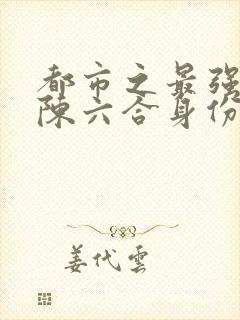 都市之最强
陈六合身份
姜代雲